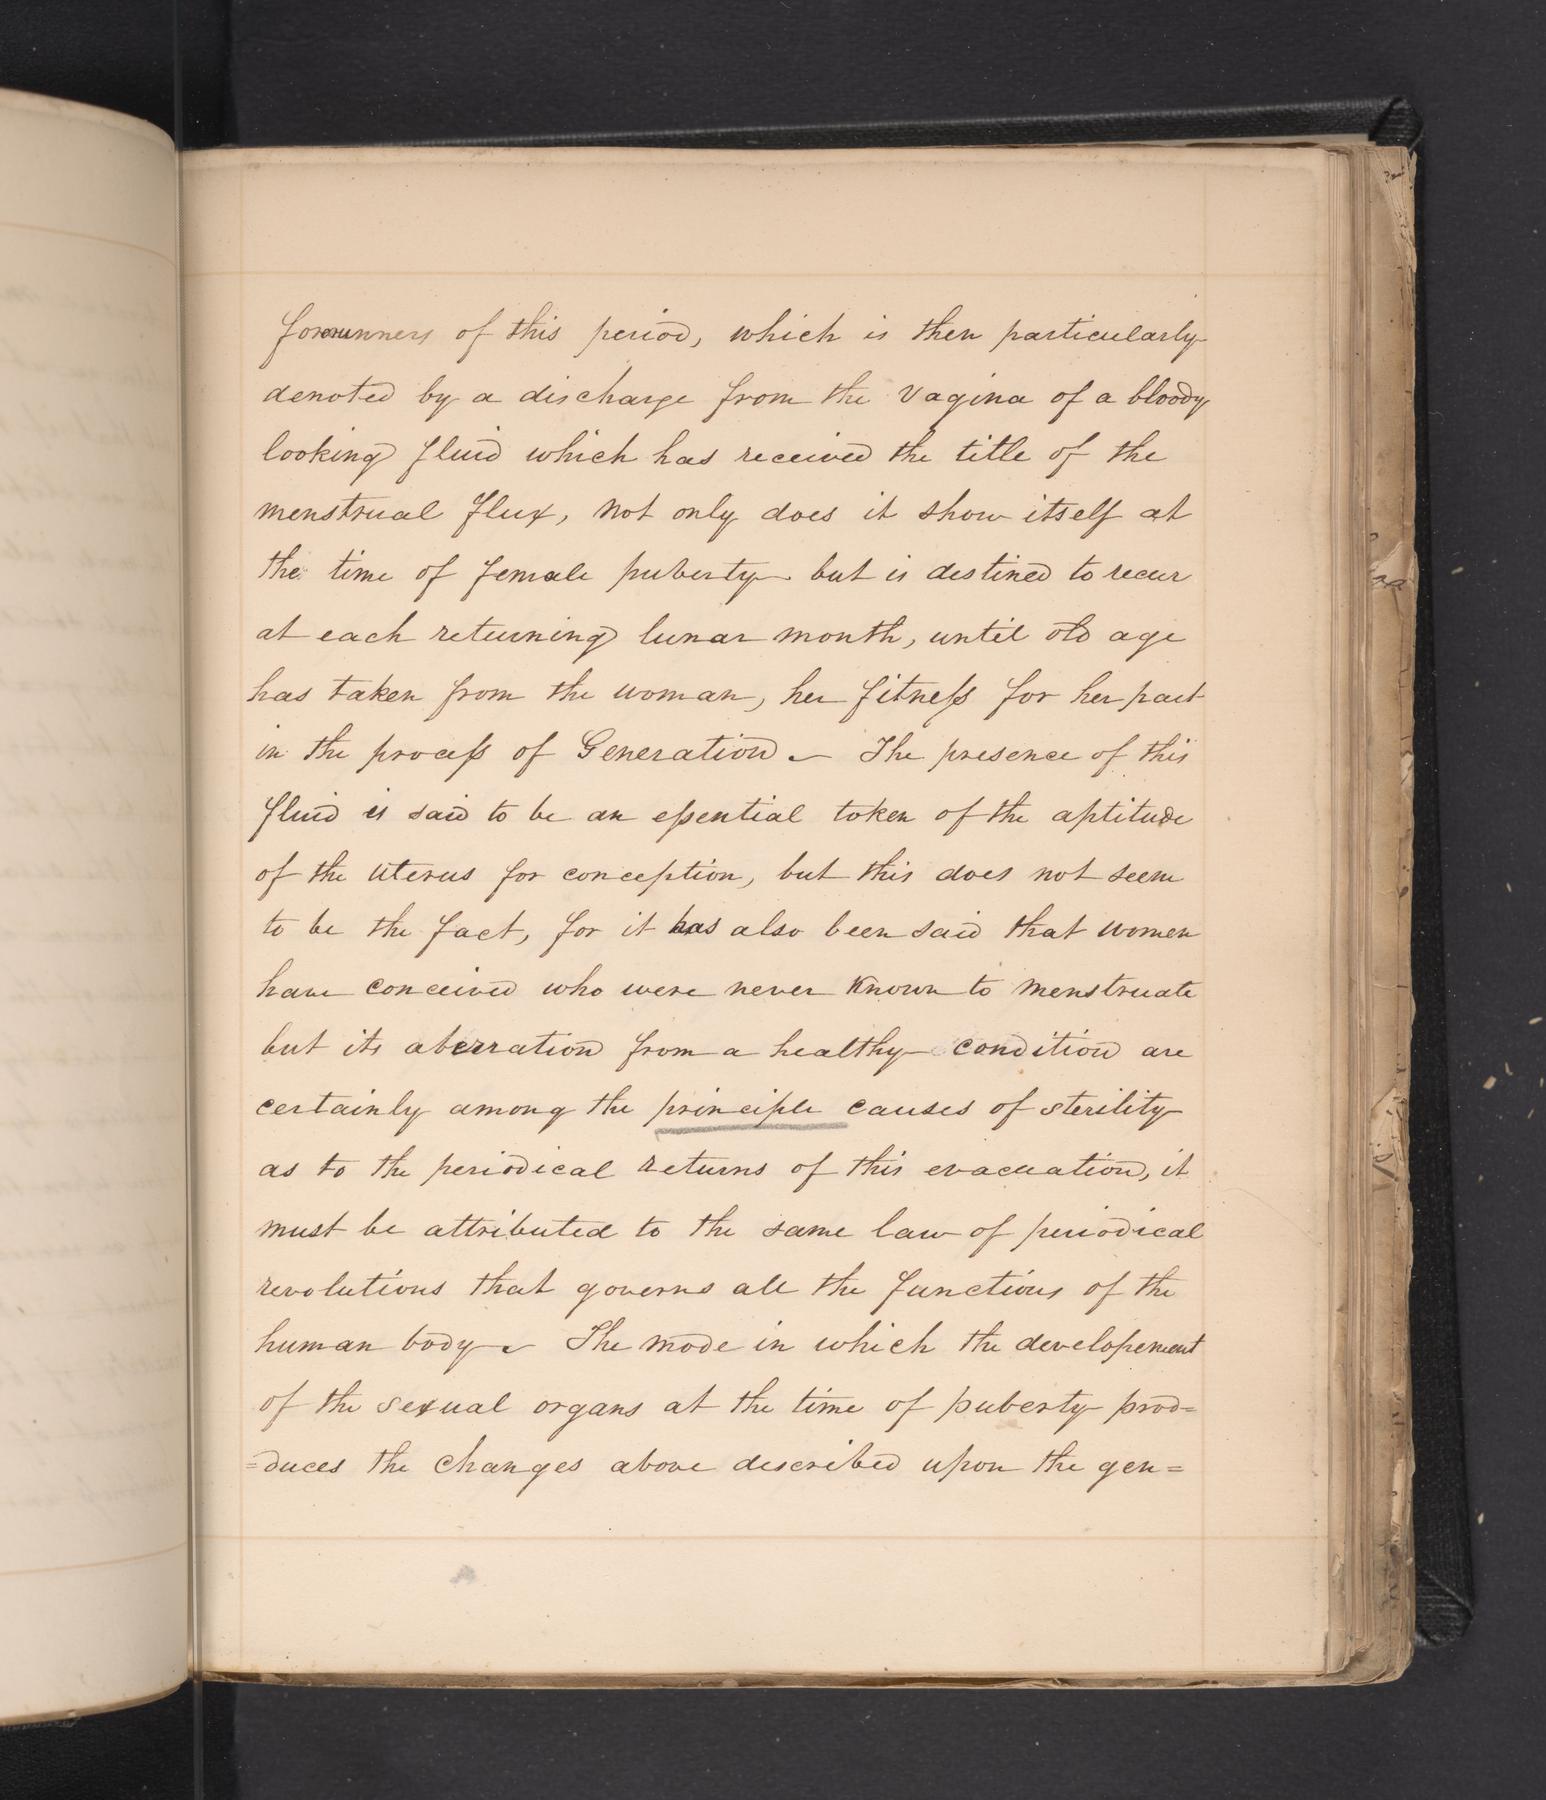 forerunners of this period, which is then particularly
denoted by a discharge from the vagina of a bloody
looking fluid which has received the title of the
menstrual flux, not only does it show itself at
the time of female puberty but is destined to recur
at each returning lunar month, until old age
has taken from the woman, her fitneſs for her part
in the proceſs of Generation – The presence of this
fluid is said to be an eſsential token of the aptitude
of the uterus for conception, but this does not seem
to be the fact, for it has also been said that women
have conceived who were never known to menstruate
but its aberration from a healthy condition are
certainly among the principle causes of sterility
as to the periodical returns of this evacuation, it
must be attributed to the same law of periodical
revolutions that governs all the functions of the
human body – The mode in which the developement
of the sexual organs at the time of puberty prod=
=duces the changes above described upon the gen=